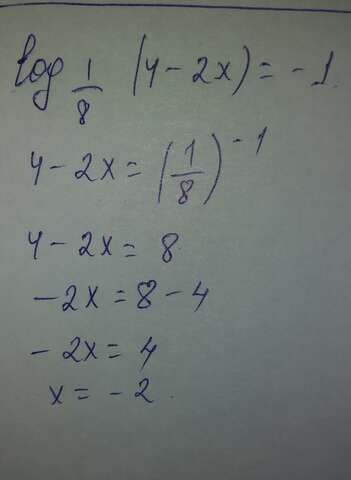 log 1/8 (4 - 2x) = -1
4 - 2x = (1/8)^-1
4 - 2x = 8
-2x = 8 - 4
-2x = 4
x = -2.